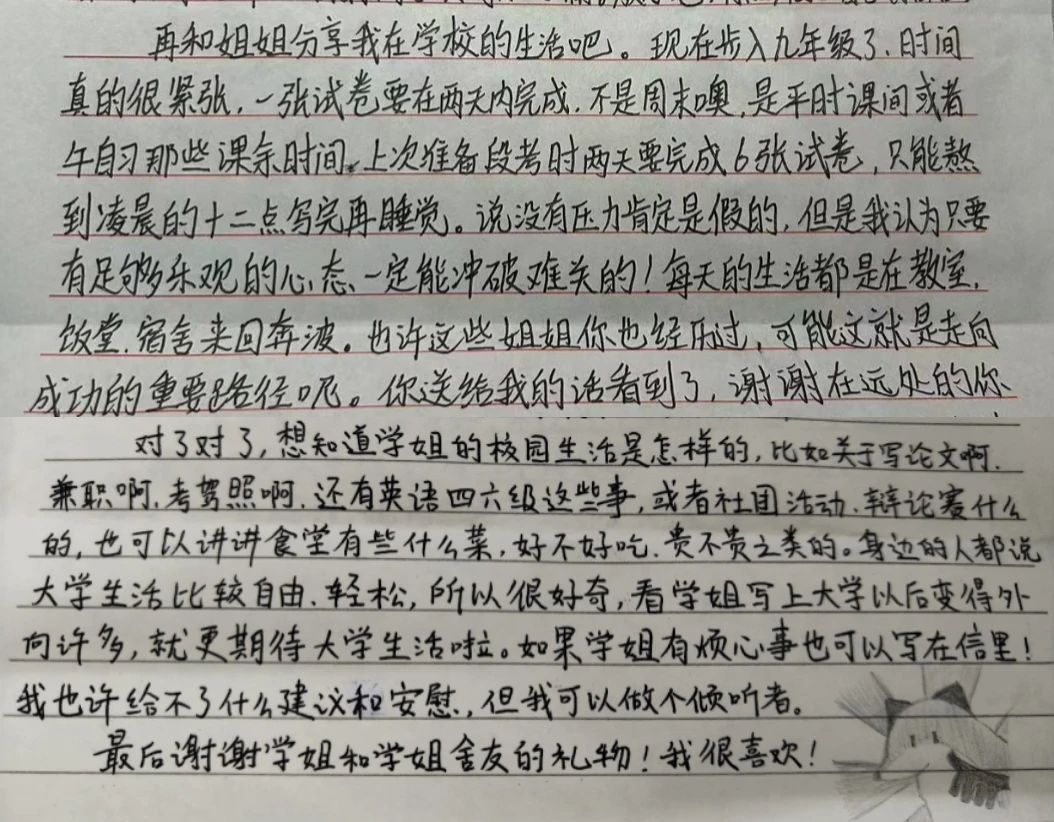 再和姐姐分享我在学校的生活吧。现在步入九年级了，时间
真的很紧张，一张试卷要在两天内完成，不是周末噢，是平时课间或者
午自习那些课余时间，上次准备段考时两天要完成6张试卷，只能熬
到凌晨的十二点写完再睡觉。说没有压力肯定是假的，但是我认为只要
有足够乐观的心态，一定能冲破难关的！每天的生活都是在教室，
饭堂，宿舍来回奔波。也许这些姐姐你也经历过，可能这就是走向
成功的重要路径呢。你送给我的话看到了，谢谢在远处的你
对了对了，想知道学姐的校园生活是怎样的，比如关于写论文啊、
兼职啊、考驾照啊，还有英语四六级这些事，或者社团活动、辩论赛什么
的，也可以讲讲食堂有些什么菜，好不好吃、贵不贵之类的。身边的人都说
大学生活比较自由、轻松，所以很好奇，看学姐写上大学以后变得外
向许多，就更期待大学生活啦。如果学姐有烦心事也可以写在信里！
我也许给不了什么建议和安慰，但我可以做个倾听者。
最后谢谢学姐和学姐舍友的礼物！我很喜欢！